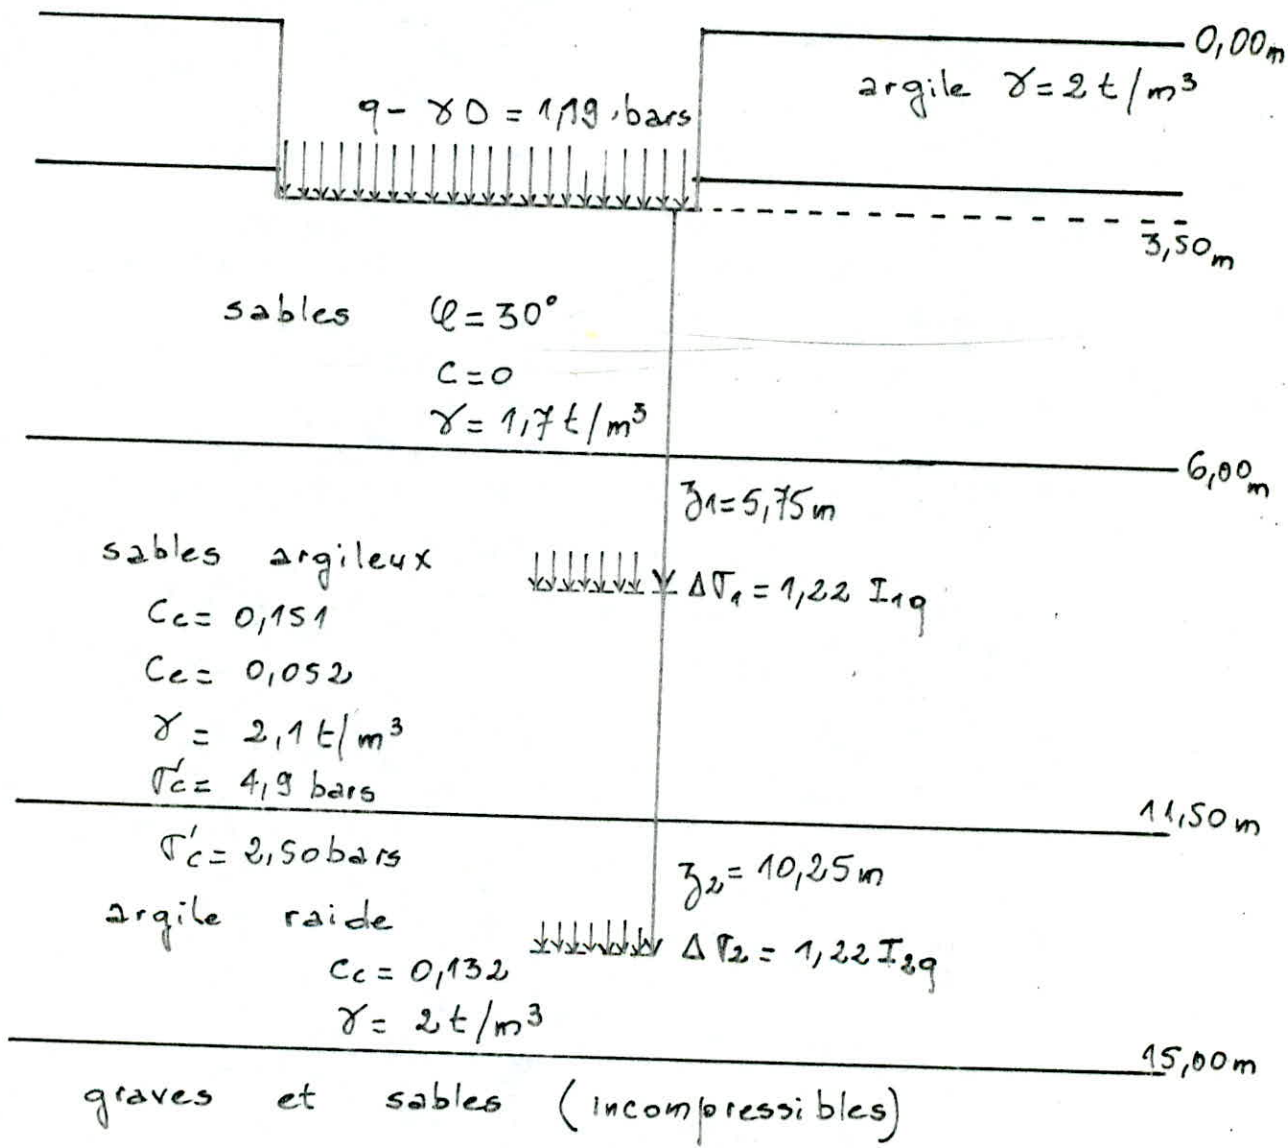 0,00m
argile γ = 2 t/m³
q - γD = 1,19 bars
3,50m
sables φ = 30°
C = 0
γ = 1,7 t/m³
6,00m
z1 = 5,75m
sables argileux
Δσ1 = 1,22 I1q
Cc = 0,151
Ce = 0,052
γ = 2,1 t/m³
σ'c = 4,9 bars
11,50m
σ'c = 2,50 bars
z2 = 10,25m
argile raide
Δσ2 = 1,22 I2q
Cc = 0,132
γ = 2 t/m³
15,00m
graves et sables (incompressibles)